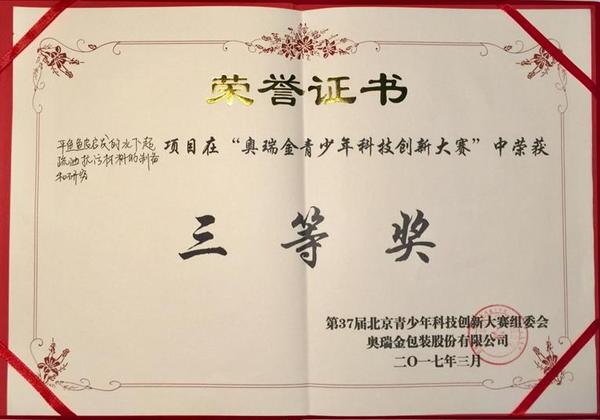 荣誉证书
平鱼鱼皮启发的水下超
疏油抗污材料的制备
和研究
项目在“奥瑞金青少年科技创新大赛”中荣获
三等奖
第37届北京青少年科技创新大赛组委会
奥瑞金包装股份有限公司
二〇一七年三月